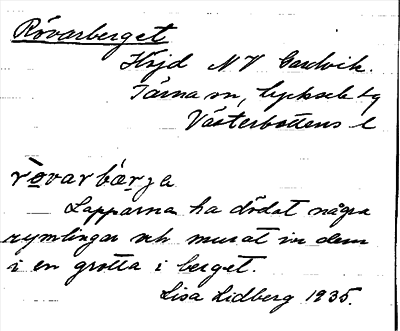 Rövarberget
Höjd NV Gardvik.
Tärna sn, Lycksele tg
Västerbottens l
rövarbärja
Lapparna ha dödat några
rymlingar och murat in dem
i en grotta i berget.
Lisa Lidberg 1935.